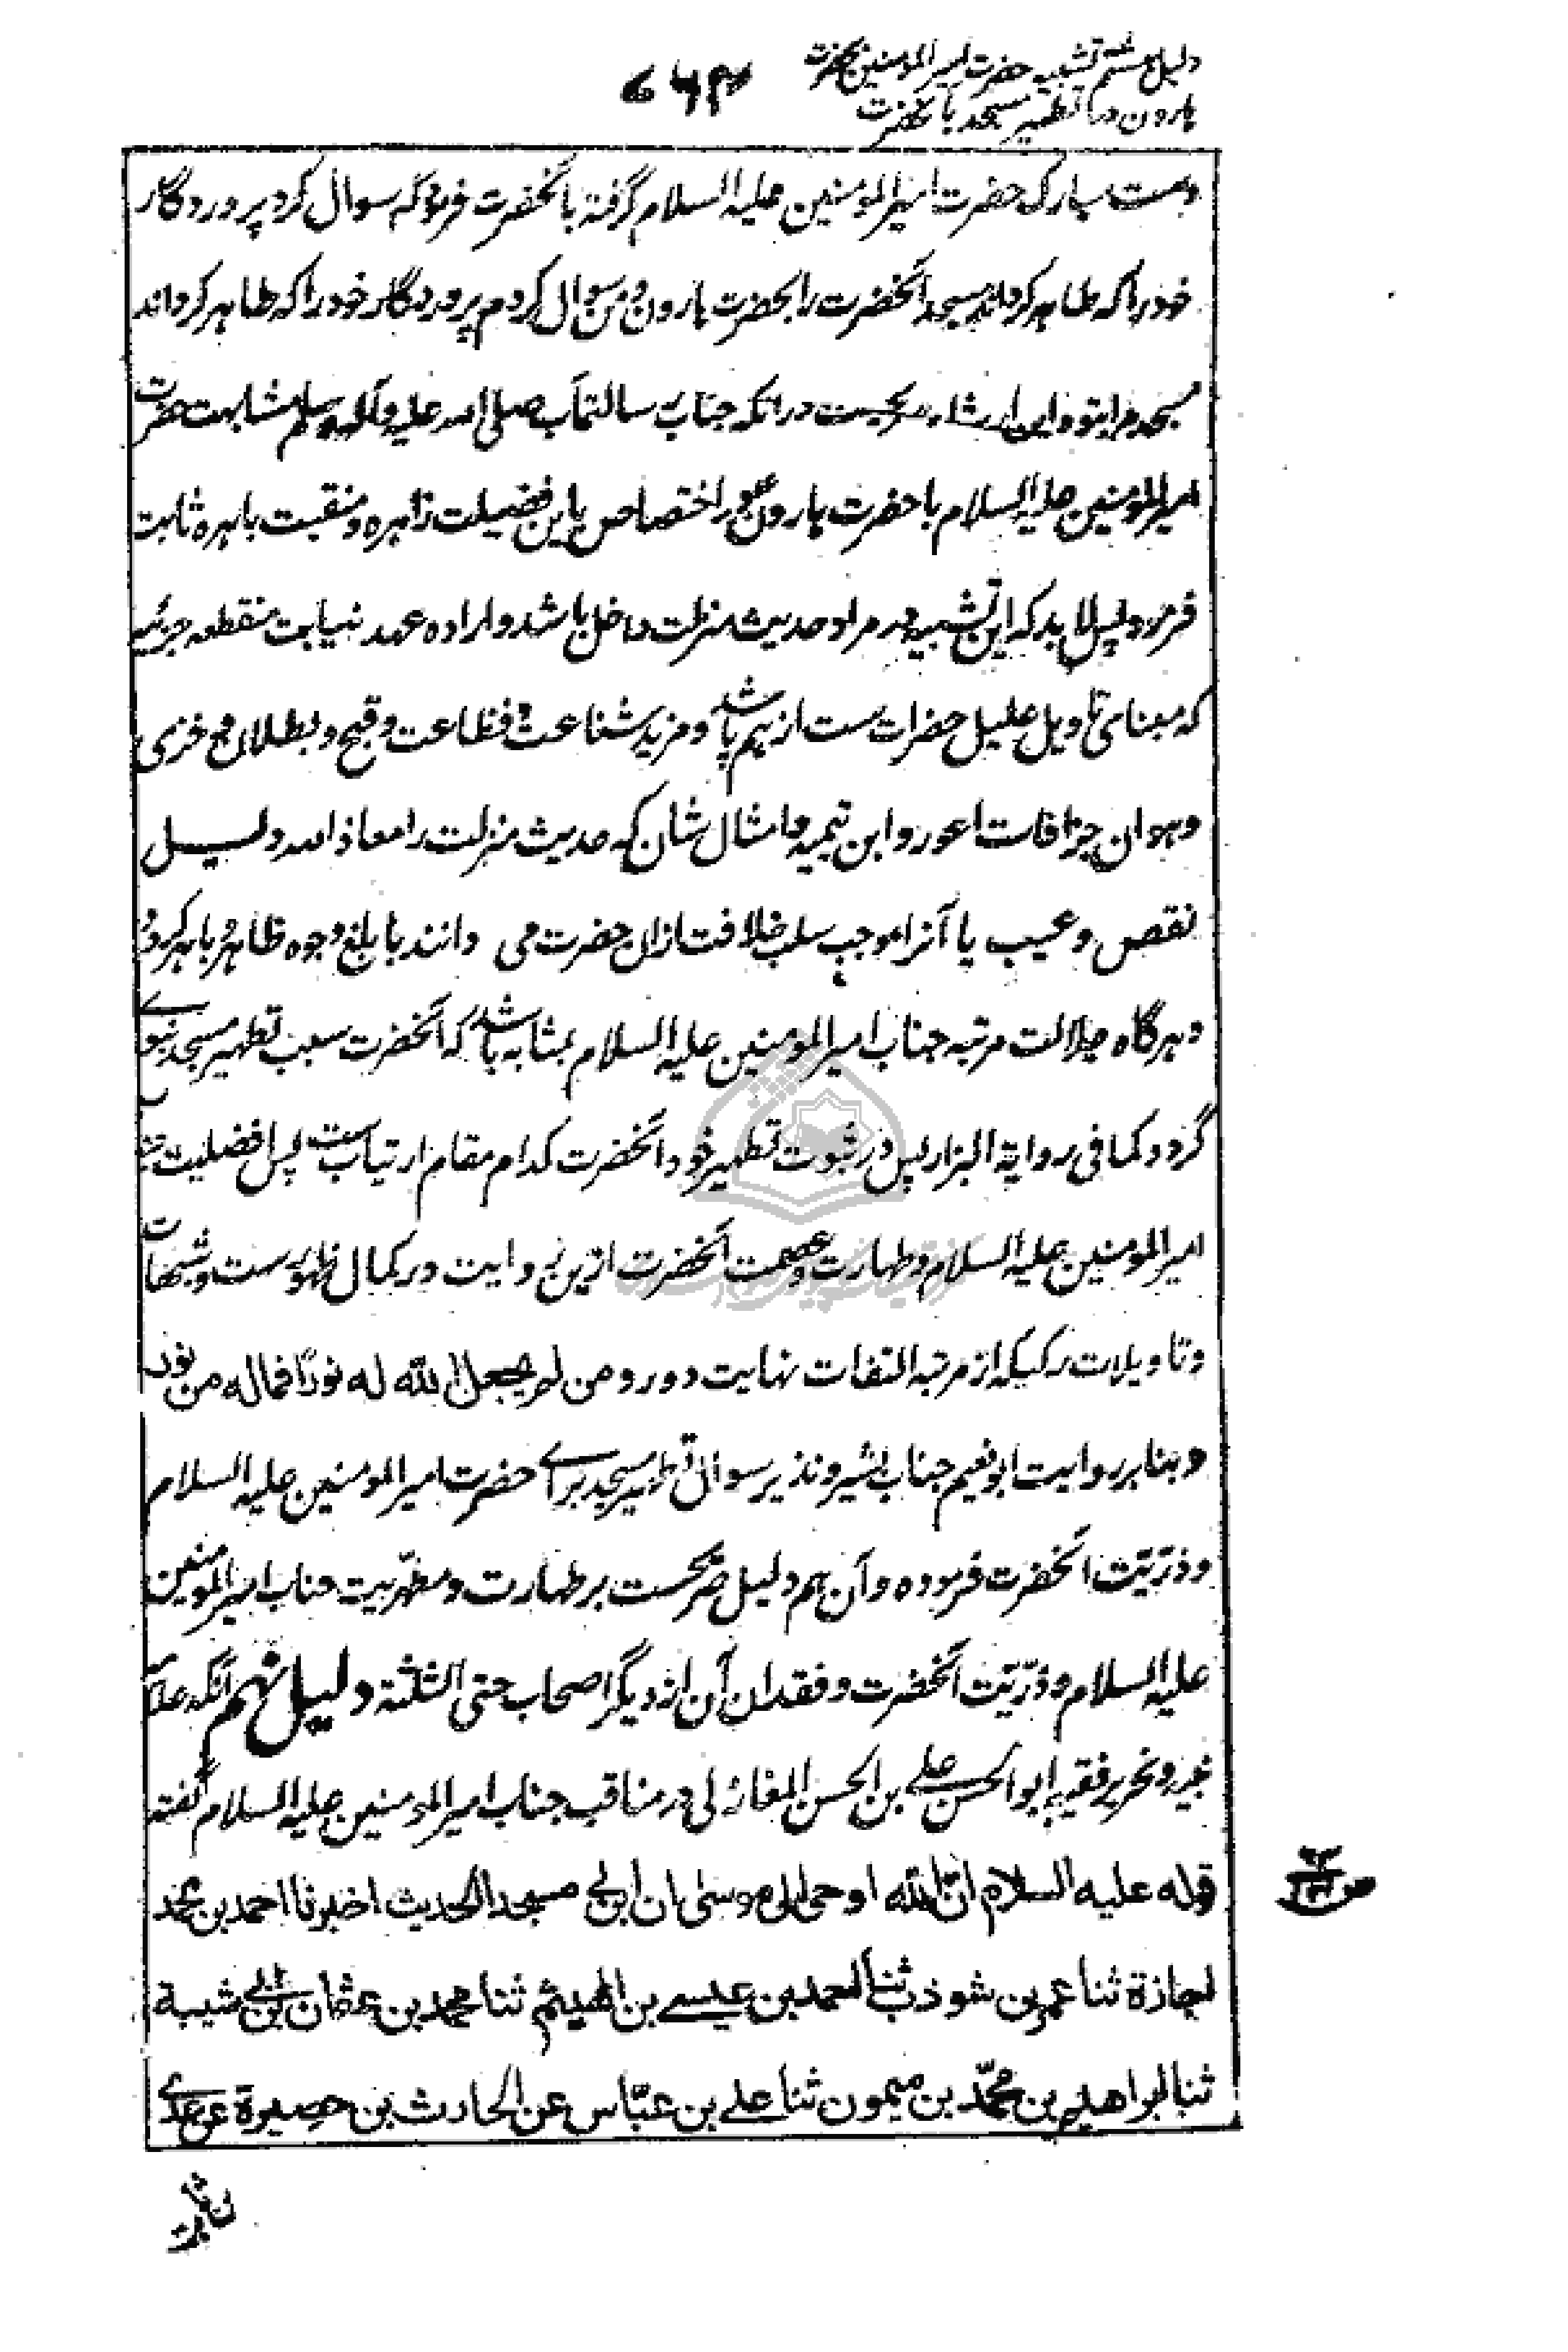 دلیل هشتم تشبیه حضرت امیرالمومنین بحضرت
هارون در تطهیر مسجد بآنحضرت
۷۶۴
دست مبارک حضرت امیرالمومنین علیه السلام گرفته بآنحضرت فرمود که سوال کرد پروردگار
خود را که طاهر گرداند مسجد آنحضرت را بحضرت هارون و من سوال کردم پروردگار خود را که طاهر گرداند
مسجد مرا بتو و این ارشاد صریحست در آنکه جناب رسالتمآب صلی الله علیه وآله وسلم مشابهت حضرت
امیرالمومنین علیه السلام با حضرت هارون ع در اختصاص باین فضیلت زاهره و منقبت باهره ثابت
فرموده پس لابد که این تشبیه در مراد حدیث منزلت داخل باشد و اراده عهد نیابت منقطعه جزئیه
که مبنای تاویل علیل حضرات ست از هم پاشد و مزید شناعت و فظاعت و قبح و بطلان و خزی
و هوان جزافات اعور و ابن تیمیه و امثال شان که حدیث منزلت را معاذ الله دلیل
نقص و عیب یا آنرا موجب سلب خلافت ازان حضرت می دانند بابلغ وجوه ظاهر و باهر گردد
و هرگاه جلالت مرتبه جناب امیرالمومنین علیه السلام بمثابه باشد که آنحضرت سبب تطهیر مسجد نبوی
گردد کما فی روایة البزار پس در ثبوت تطهیر خود آنحضرت کدام مقام ارتیاب ست پس افضلیت
امیرالمومنین علیه السلام و طهارت و عصمت آنحضرت ازین روایت در کمال ظهورست و شبهات
و تاویلات رکیکه از مرتبه التفات نهایت دور و من لم یجعل الله له نورًا فما له من نور
و بنا بر روایت ابو نعیم جناب بشیر و نذیر سوال تطهیر مسجد برای حضرت امیر المومنین علیه السلام
و ذرّیّت آنحضرت فرموده و آن هم دلیل صریحست بر طهارت و مطهّریت جناب امیرالمومنین
علیه السلام و ذرّیّت آنحضرت و فقدان آن از دیگر اصحاب حتی الثلثة دلیل نهم آنکه علامه
نحریر فقیه ابوالحسن علی بن الحسن المغازلی در مناقب جناب امیرالمومنین علیه السلام گفته
قوله علیه السلام انّ الله اوحی الی موسی ان ابن لی مسجدا الحدیث اخبرنا احمد بن محمد
اجازة ثنا عمر بن شوذب ثنا احمد بن عیسی بن الهیثم ثنا محمد بن عثمان بن ابی شیبة
ثنا ابراهیم بن محمّد بن میمون ثنا علی بن عبّاس عن الحارث بن حصیرة عن عدی
بن ثابت